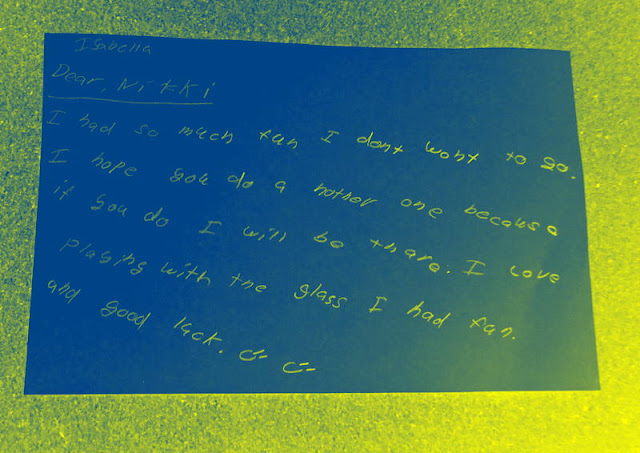 Isabella
Dear, Nikki
I had so much fun I don't wont to go.
I hope you do a nother one because
if you do I will be thare. I love
playing with the glass I had fun.
and good luck.